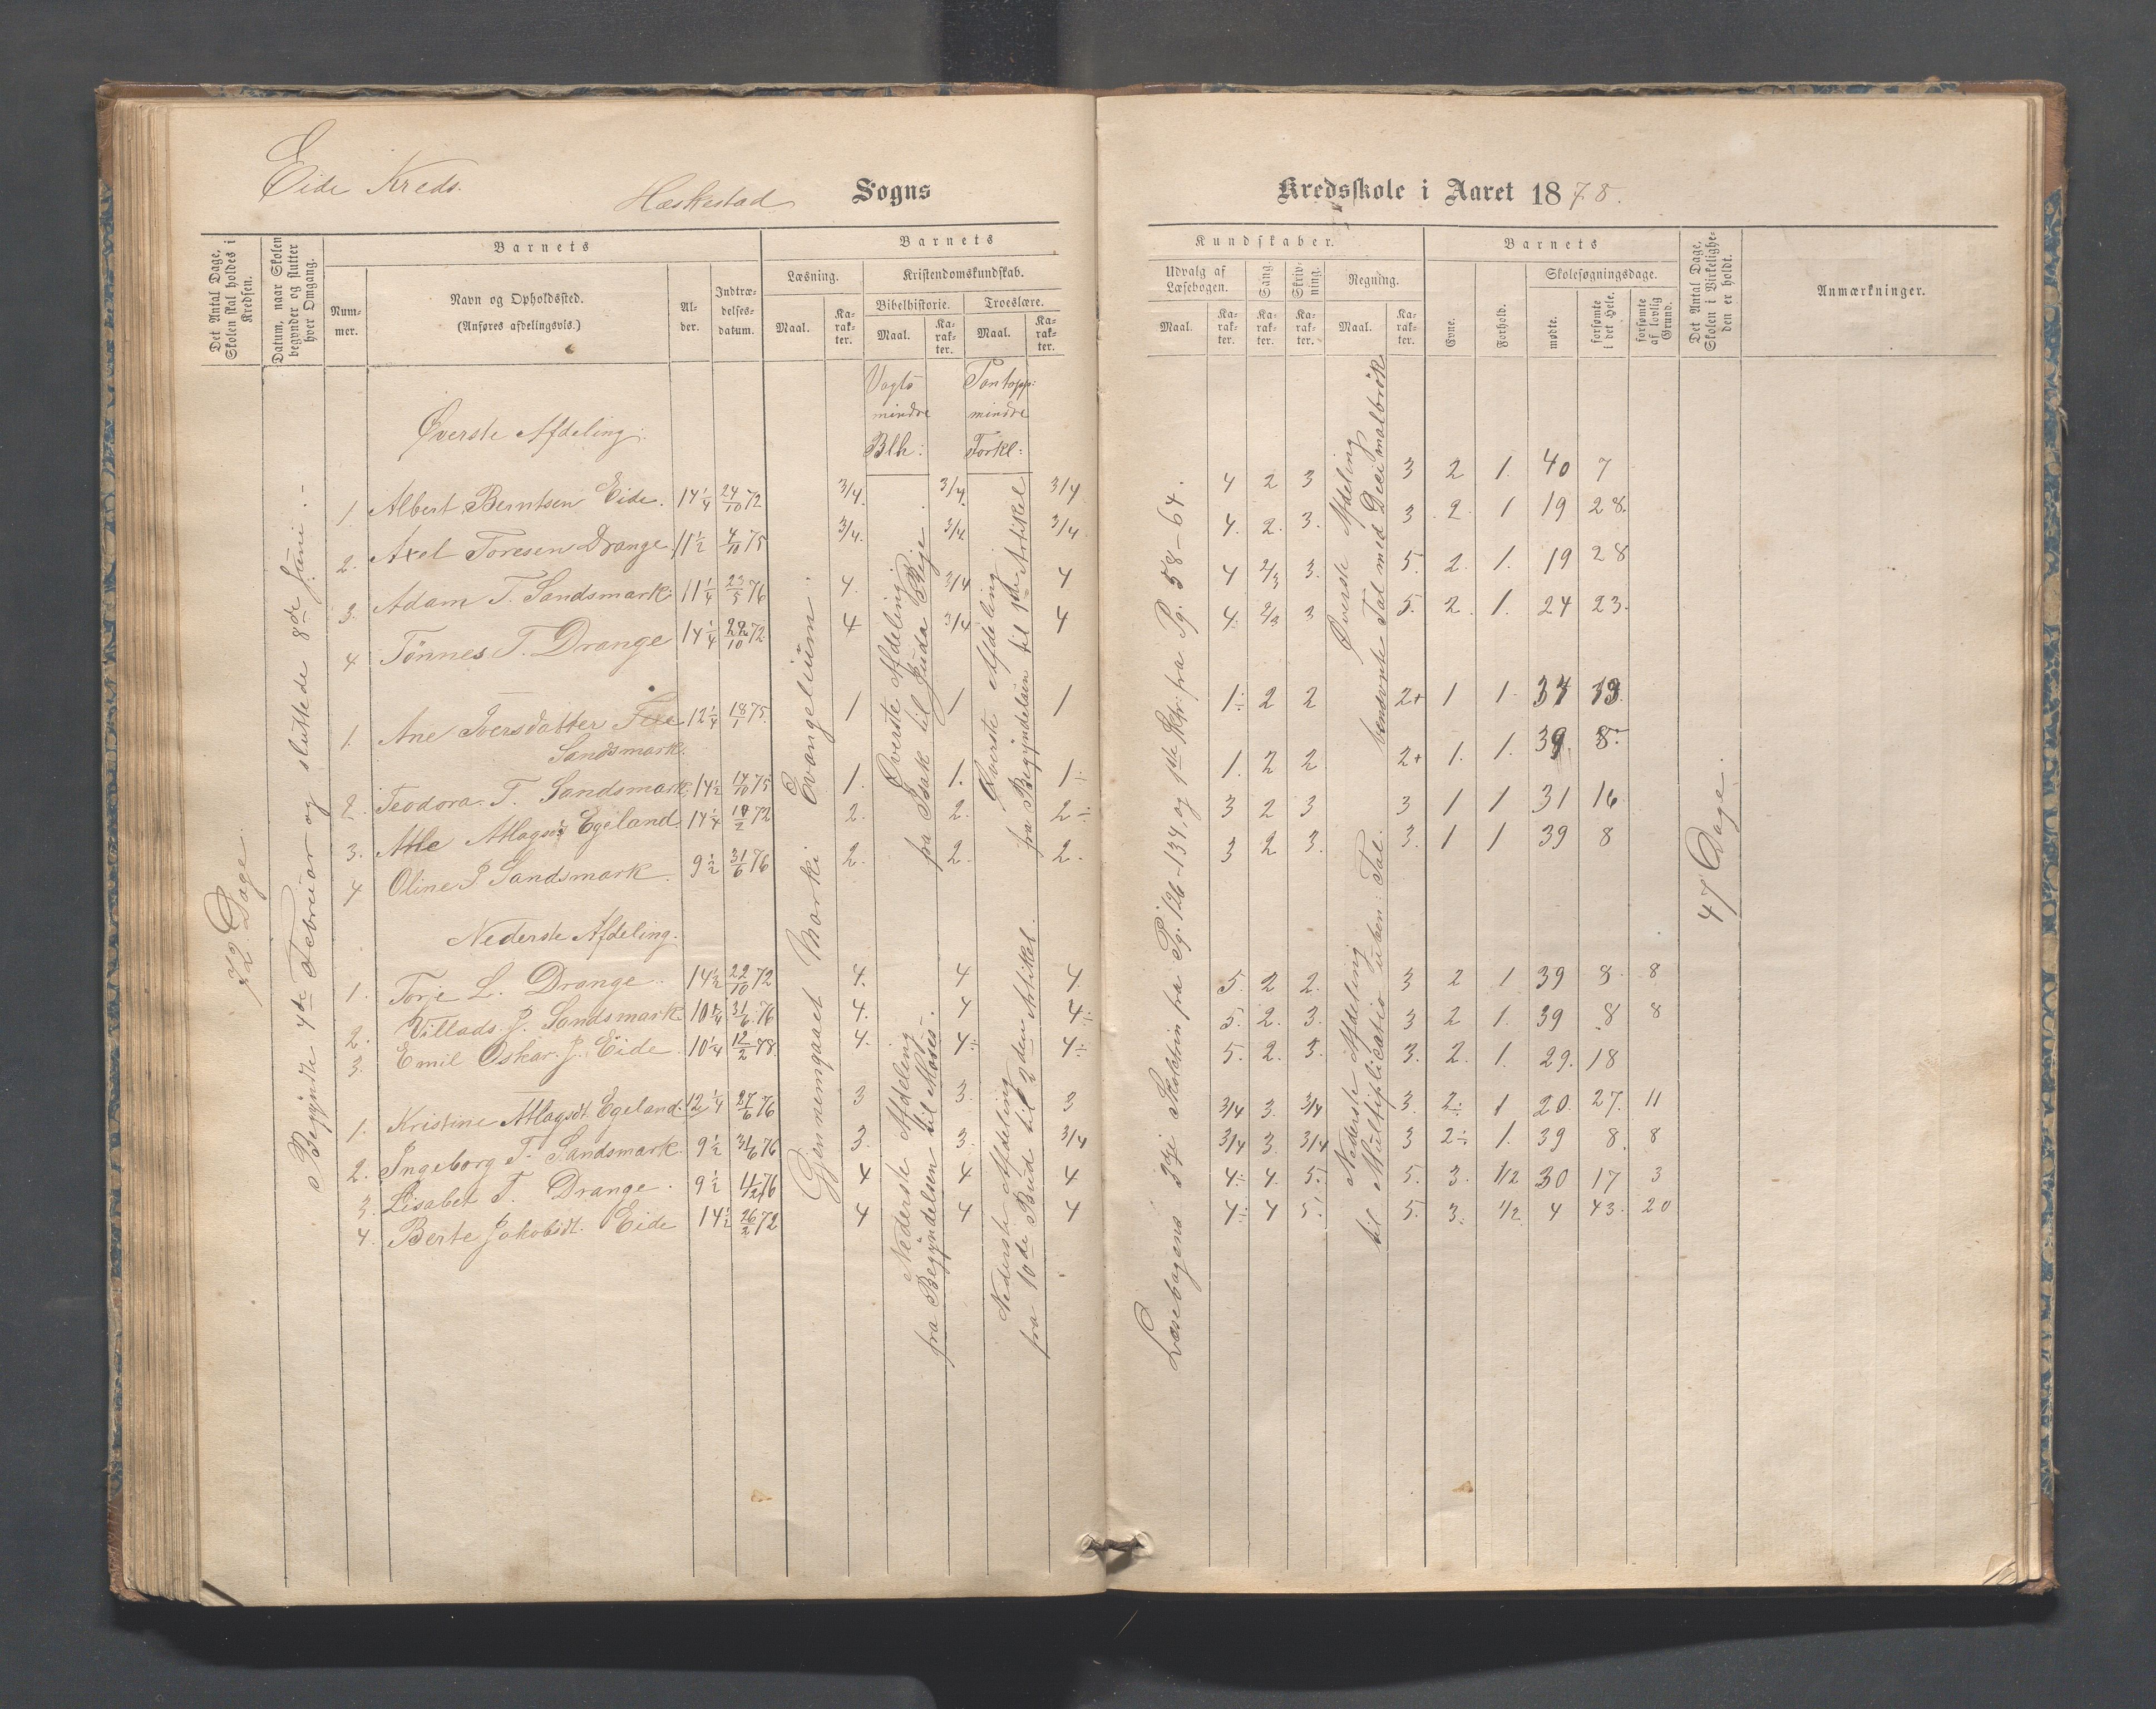 Eide Kreds.
Heskestad Sogns
Kredsskole i Aaret 1878.
Det Antal Dage, Skolen skal holdes i Kredsen.
Datum, naar Skolen begynder og slutter hver Omgang.
Barnets
Num-
mer.
Navn og Opholdssted.
(Anføres afdelingsvis.)
Al-
der.
Indtræ-
delses-
datum.
Barnets
Læsning.
Maal.
Ka-
rak-
ter.
Kristendomskundskab.
Bibelhistorie.
Maal.
Ka-
rak-
ter.
Troeslære.
Maal.
Ka-
rak-
ter.
Kundskaber.
Udvalg af
Læsebogen.
Maal.
Ka-
rak-
ter.
Sang.
Ka-
rak-
ter.
Skriv-
ning.
Ka-
rak-
ter.
Regning.
Maal.
Ka-
rak-
ter.
Barnets
Evne.
Forhold.
Skolesøgningsdage.
mødte.
forsømte i det Hele.
forsømte af lovlig Grund.
Det Antal Dage, Skolen i Virkelighe-
den er holdt.
Anmærkninger.
72 Dage.
Begyndte 4de Februar og sluttede 8de Juni.-
Vogts
mindre
Blh:
Pontopp:
mindre
Forkl:
Øverste Afdeling.
1. Albert Berntsen Eide. 14 1/4 24/10 72 3/4. 3/4. 3/4 4 2 3 3 2 1. 40 7
2. Axel Toresen Drange. 11 1/2 4/10 75 3/4. 3/4. 3/4 4. 2. 3. 3 2. 1 19 28.
3. Adam T. Sandsmark. 11 1/4 23/5 76 4. 3/4 4 4 2/3 3. 5. 2. 1. 19 28
4 Tönnes T. Drange 14 1/4 29/10 72 4 3/4 4 4. 2/3 3 5. 2. 1. 24 23.
1. Ane Iversdatter 12 1/4 18/1 75. 1 1 1 1÷ 2 2 2+ 1 1
Sandsmark.
2. Teodora T. Sandsmark. 14 1/2 14/10 75 1. 1. 1÷ 1. 2 2 2+ 1. 1. 39 8.
3. Atlagsd. Egeland. 14 1/4 72 2. 2. 2÷ 3 2 3 3 1 1 31 16
4 Oline J Sandsmark. 9 1/2 31/6 76 2. 2. 2. 3 2 3. 3. 1 1 39 8
Nederste Afdeling.
1. Torje L. Drange. 14 1/2 22/10 72 4. 4 4. 5. 2 2. 3 2 1 39 8. 8
2. Villads J. Sandsmark. 10 1/4 31/6 76 4. 4 4÷ 5. 2. 3. 3 2 1. 39 8 8
3. Emil Oskar J. Eide. 10 1/4 12/2 78. 4. 4÷ 4÷ 5. 2. 3. 3. 2. 1. 29. 18
1. Kristine Atlagsdt Egeland. 12 1/4 27/6 76 3 3. 3 3/4 3. 3/4 3. 2÷ 1 20. 27. 11
2. Ingeborg T. Sandsmark. 9 1/2 31/6 76 3. 3. 3/4 3/4 3. 3/4 3 2÷ 1. 39 8. 8
3. Lisabet T. Drange. 9 1/2 76 4 4 4 4÷ 4. 5. 5. 3. 1/2 30 17 3
4. Berte Jakobsdt. Eide 14 1/2 26/2 72 4 4 4 4÷ 4 5. 5. 3. 1/2 4 43. 20
Gjennemgaaet Marki Evangelium.
Øverste Afdeling
fra Isak til Juda Rige.
Nederste Afdeling
fra Begyndelsen til Moses.-
Øverste Afdeling
fra Begyndelsen til 1ste Artikel
Nederste Afdeling
fra 10de Bud til 2den Artikel.
Læsebogens 3dje fra Pg. 126-134, og 1ste fra Pg. 58-64.
Øverste Afdeling
benævnte Tal med Decimalbrök
Nederste Afdeling
til Multiplication uben: Tal.
47 Dage.